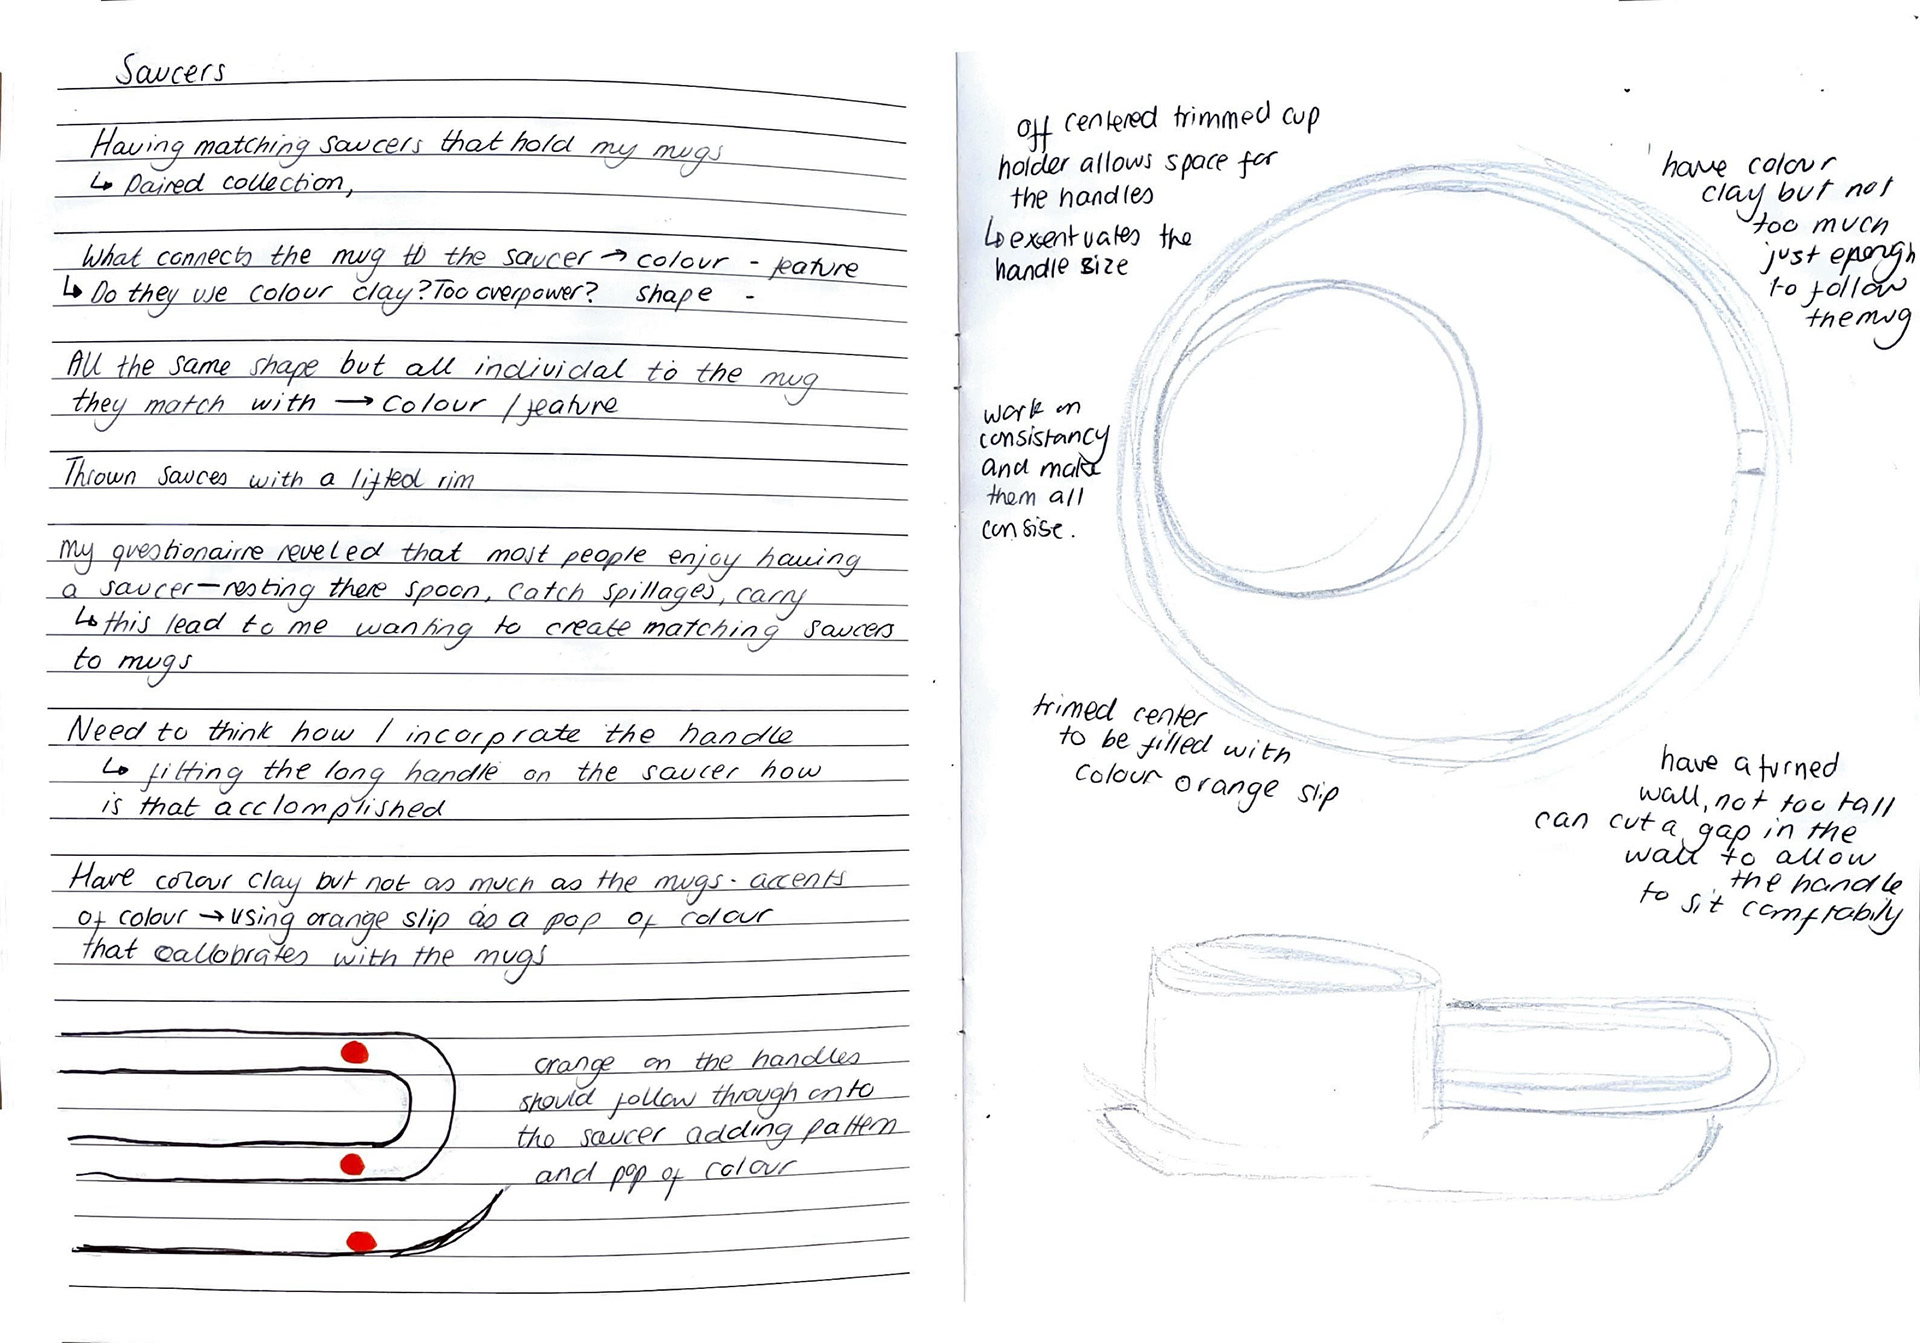 Saucers
Having matching saucers that hold my mugs
↳ Paired collection,
What connects the mug to the saucer → colour - feature
↳ Do they use colour clay? Too overpower? shape -
All the same shape but all individal to the mug
they match with → colour / feature
Thrown sauces with a lifted rim
My questionairre reveled that most people enjoy having
a saucer – resting there spoon, catch spillages, carry
↳ this lead to me wanting to create matching saucers
to mugs
Need to think how I incorprate the handle
↳ fitting the long handle on the saucer how
is that acclomplished
Have colour clay but not as much as the mugs - accents
of colour → using orange slip as a pop of colour
that callobrates with the mugs
orange on the handles
should follow through onto
the saucer adding pattern
and pop of colour
off centered trimmed cup
holder allows space for
the handles
↳ exentuates the
handle size
have colour
clay but not
too much
just enough
to follow
the mug
work on
consistancy
and make
them all
consise.
trimed center
to be filled with
colour orange slip
have a turned
wall, not too tall
can cut a gap in the
wall to allow
the handle
to sit comftabily